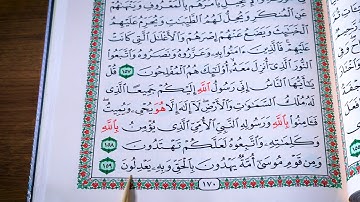 عَنِ ٱلْمُنكَرِ وَيُحِلُّ لَهُمُ ٱلطَّيِّبَٰتِ وَيُحَرِّمُ عَلَيْهِمُ
ٱلْخَبَٰٓئِثَ وَيَضَعُ عَنْهُمْ إِصْرَهُمْ وَٱلْأَغْلَٰلَ ٱلَّتِى كَانَتْ
عَلَيْهِمْ فَٱلَّذِينَ ءَامَنُوا۟ بِهِۦ وَعَزَّرُوهُ وَنَصَرُوهُ وَٱتَّبَعُوا۟
ٱلنُّورَ ٱلَّذِىٓ أُنزِلَ مَعَهُۥٓ أُو۟لَٰٓئِكَ هُمُ ٱلْمُفْلِحُونَ ١٥٧ قُلْ
يَٰٓأَيُّهَا ٱلنَّاسُ إِنِّى رَسُولُ ٱللَّهِ إِلَيْكُمْ جَمِيعًا ٱلَّذِى
لَهُۥ مُلْكُ ٱلسَّمَٰوَٰتِ وَٱلْأَرْضِ لَآ إِلَٰهَ إِلَّا هُوَ يُحْىِۦ وَيُمِيتُ
فَـَٔامِنُوا۟ بِٱللَّهِ وَرَسُولِهِ ٱلنَّبِىِّ ٱلْأُمِّىِّ ٱلَّذِى يُؤْمِنُ بِٱللَّهِ
وَكَلِمَٰتِهِۦ وَٱتَّبِعُوهُ لَعَلَّكُمْ تَهْتَدُونَ ١٥٨
وَمِن قَوْمِ مُوسَىٰٓ أُمَّةٌ يَهْدُونَ بِٱلْحَقِّ وَبِهِۦ يَعْدِلُونَ ١٥٩
١٧٠